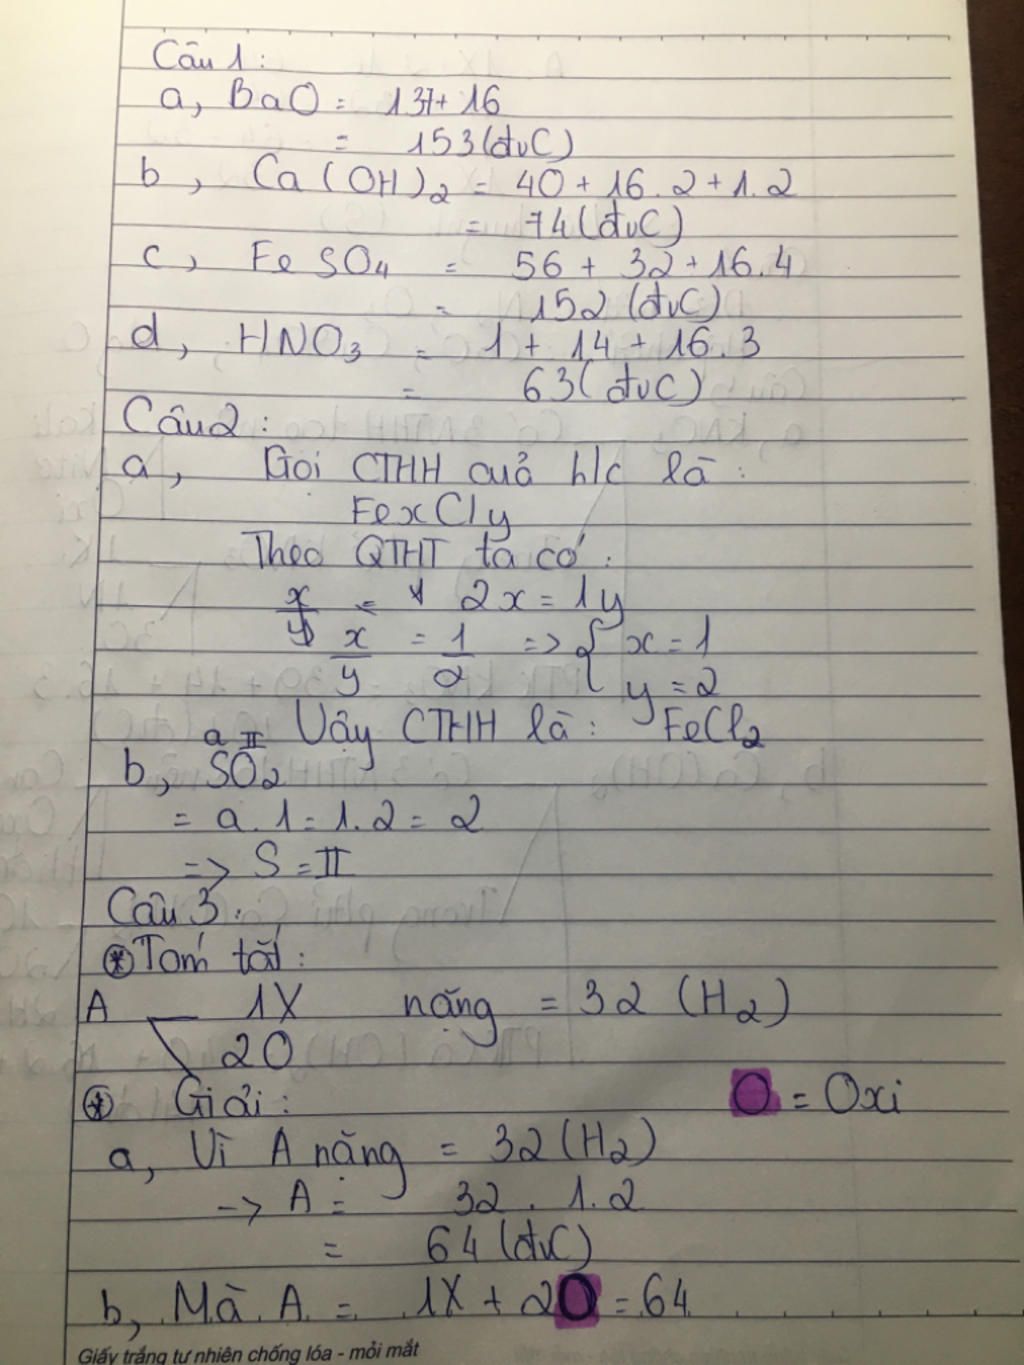 Câu 1:
a, BaO = 137 + 16
= 153 (đvC)
b, Ca(OH)₂ = 40 + 16.2 + 1.2
= 74 (đvC)
c, FeSO₄ = 56 + 32 + 16.4
= 152 (đvC)
d, HNO₃ = 1 + 14 + 16.3
= 63 (đvC)
Câu 2:
a, Gọi CTHH cuả h/c là:
FexCly
Theo QTHT ta có:
2x = 1y
x/y = 1/2 => { x = 1
y = 2
Vậy CTHH là: FeCl₂
a II
b, SO₂
= a.1 = 1.2 = 2
=> S = II
Câu 3:
* Tóm tắt:
A 1X nặng = 32 (H₂)
2O
* Giải: O = Oxi
a, Vì A nặng = 32 (H₂)
-> A = 32 . 1.2
= 64 (đvC)
b, Mà A = 1X + 2O = 64
Giấy trắng tự nhiên chống lóa - mỏi mắt